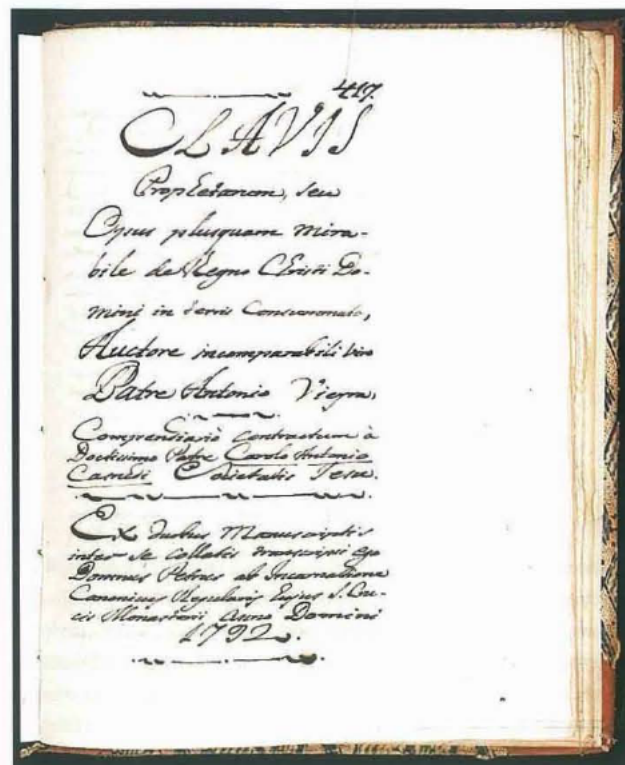 417.
CLAVIS
Prophetarum, seu
Opus plusquam mira-
bile de Regno Christi Do-
mini in terris Consummato,
Auctore incomparabili viro
Patre Antonio Vieyra,
Compendiario contractum à
Doctissimo Patre Carolo Antonio
Casnedi Societatis Jesu.
Ex duobus Manuscriptis
inter se collatis transcripsi ego
Dominus Petrus ab Incarnatione
Canonicus Regularis hujus S. Cru-
cis Monasterii Anno Domini
1792.